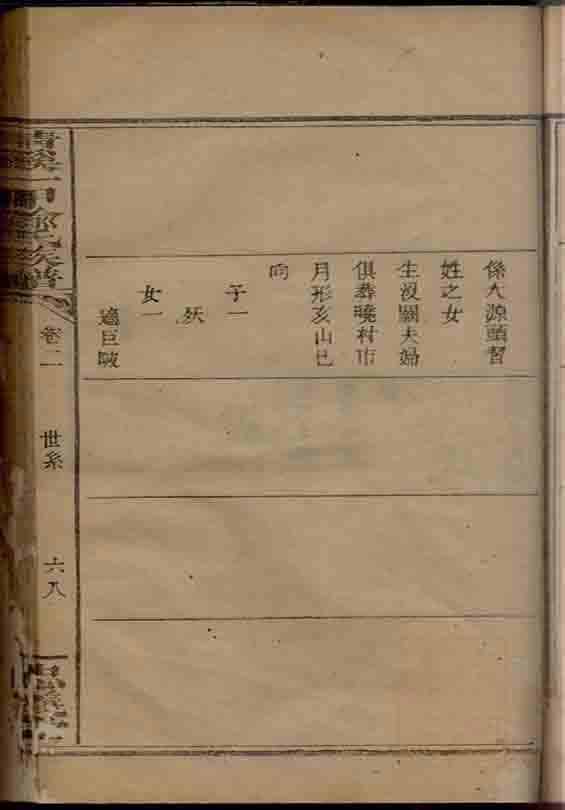 係大源頭曾
姓之女
生沒關夫婦
俱葬曉村市
月形亥山巳
向
子一
妖
女一
適巨陂
族譜
卷二
世系
六八